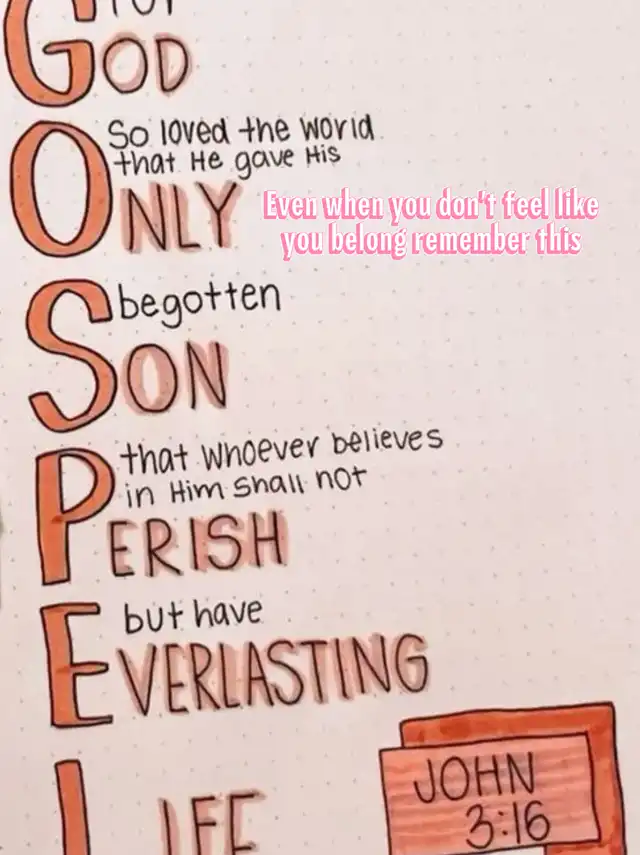 GOD
So loved the world
that He gave His
ONLY
Even when you don't feel like
you belong remember this
begotten
SON
that whoever believes
in Him shall not
PERISH
but have
EVERLASTING
LIFE
JOHN
3:16